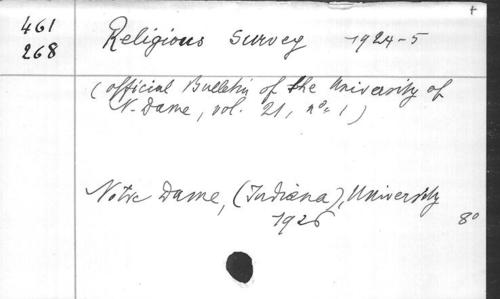 461
268
Religious survey 1924-5
(official Bulletin of the University of
N. Dame, vol. 21, n° 1)
Notre Dame, (Indiana), University
1926 8°